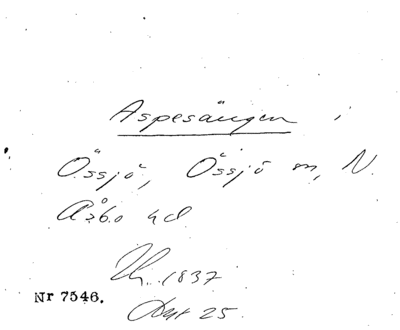 Aspesängen i
Össjö, Össjö sn, N.
Åsbo hd
1837
Nr 7546.
25.